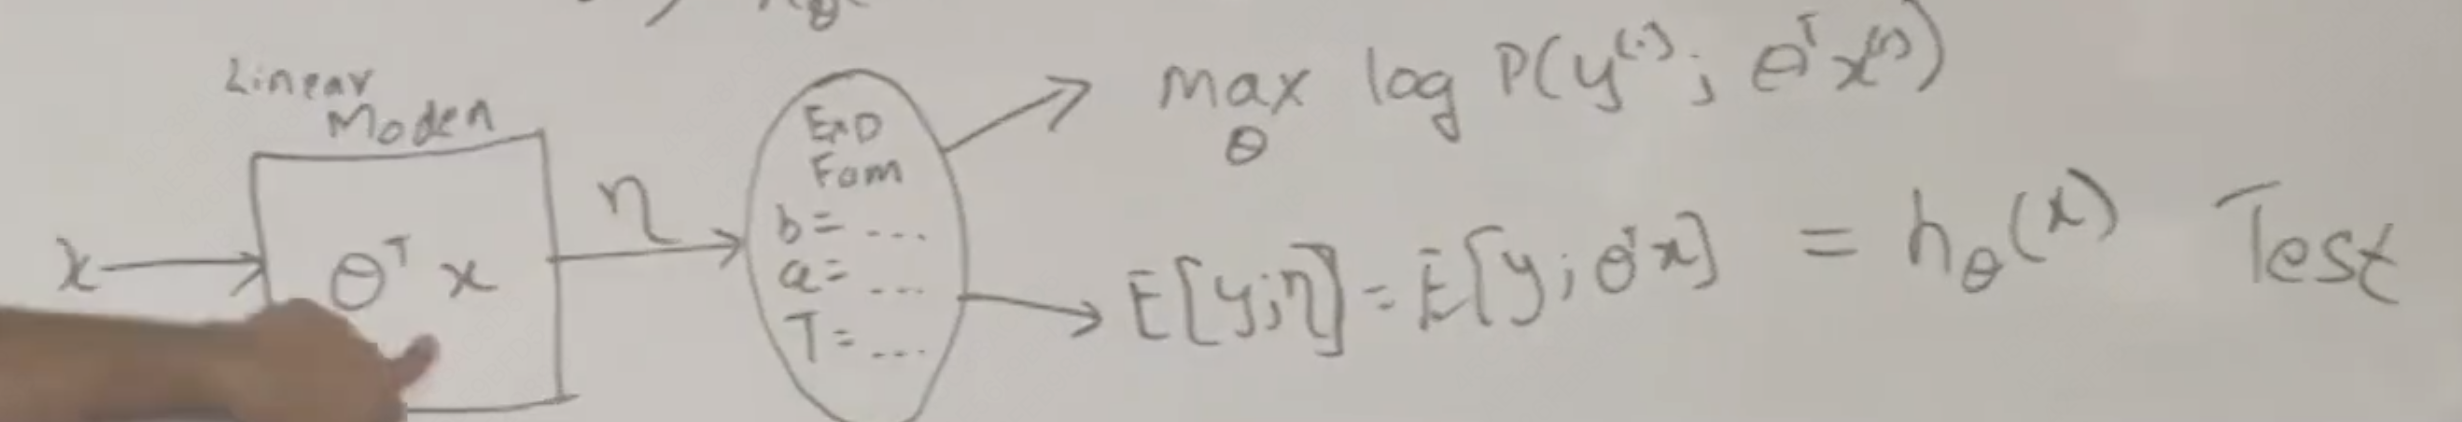 Linear
Model
x
θᵀ x
η
Exp
Fam
b = ...
a = ...
T = ...
max log P(y⁽ⁱ⁾; θᵀ x⁽ⁱ⁾)
θ
E[y;η] = E[y; θᵀx] = h_θ(x) Test